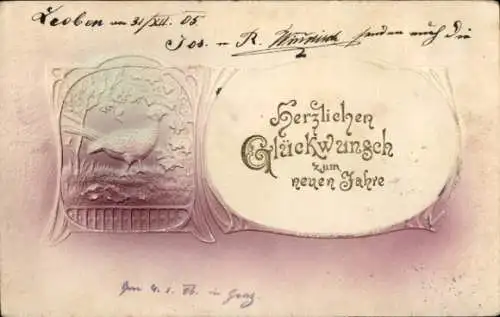 Leoben am 31/XII. 05
Jos. u. R. senden auch die
Herzlichen
Glückwunsch
zum
neuen Jahre
Am 4. 1. 06. in Graz.